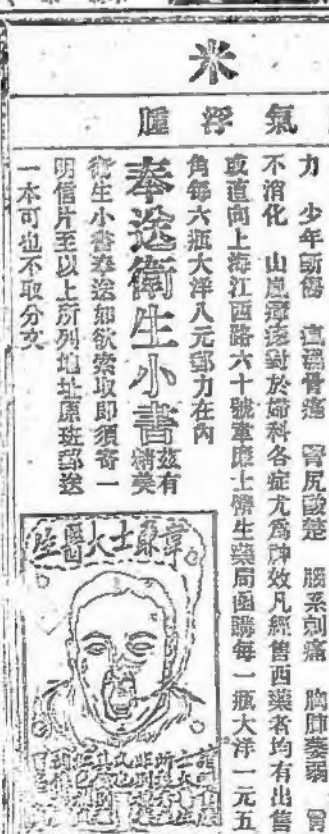 米
氣浮腫
力 少年斲傷 骨痛 臀尻酸楚 腦系刺痛 胸肺萎弱 胃
不消化 山嵐瘴瘧對於婦科各症尤爲神效凡經售西藥者均有出售
或直向上海江西路六十號韋廉士醫生藥局函購每一瓶大洋一元五
角每六瓶大洋八元郵力在內
奉送衛生小書茲有精美
衛生小書奉送如欲索取即須寄一
明信片至以上所列地址原班郵送
一本可也不取分文
韋廉士大醫生